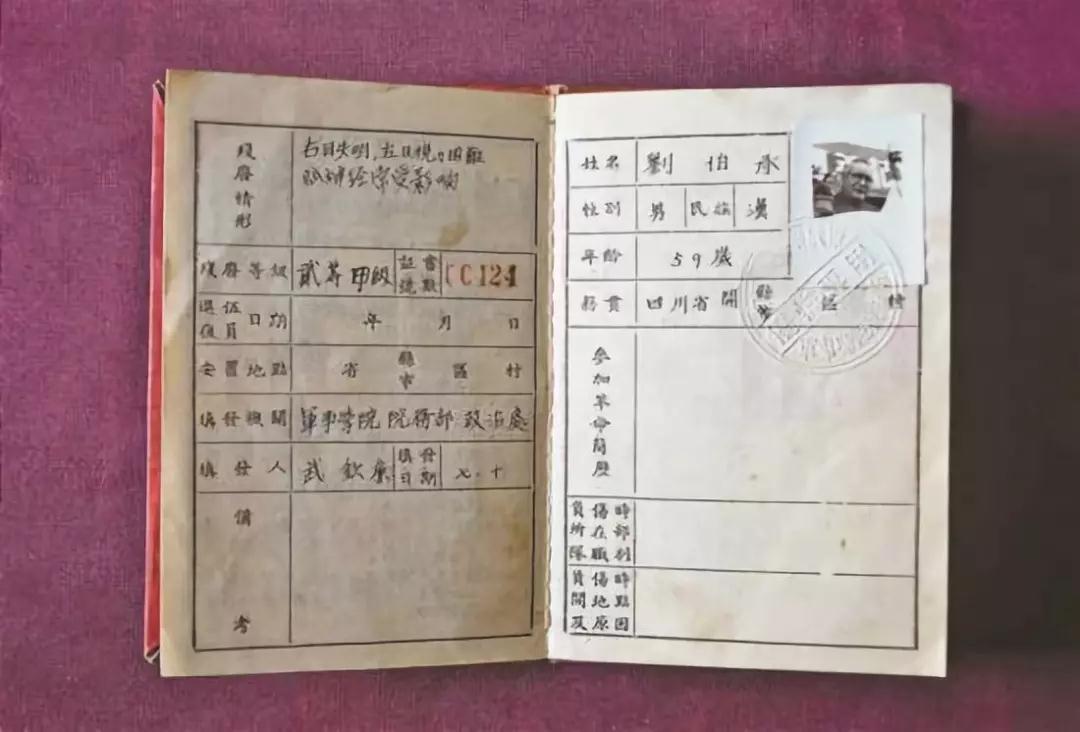 殘廢情形 右目失明,左目視力困難
腦神經常受影响
殘廢等級 貳等甲級 証書號數
退伍復員日期 年 月 日
安置地點 省 縣市 區 村
填發機關 軍事學院 院務部 政治處
填發人 武欽 填發日期 七.十
備考
姓名 劉伯承
性別 男 民族 漢
年齡 59歲
籍貫 四川省開縣市 區 村
參加革命簡歷
負傷時所在部隊職別
負傷時間地點及原因